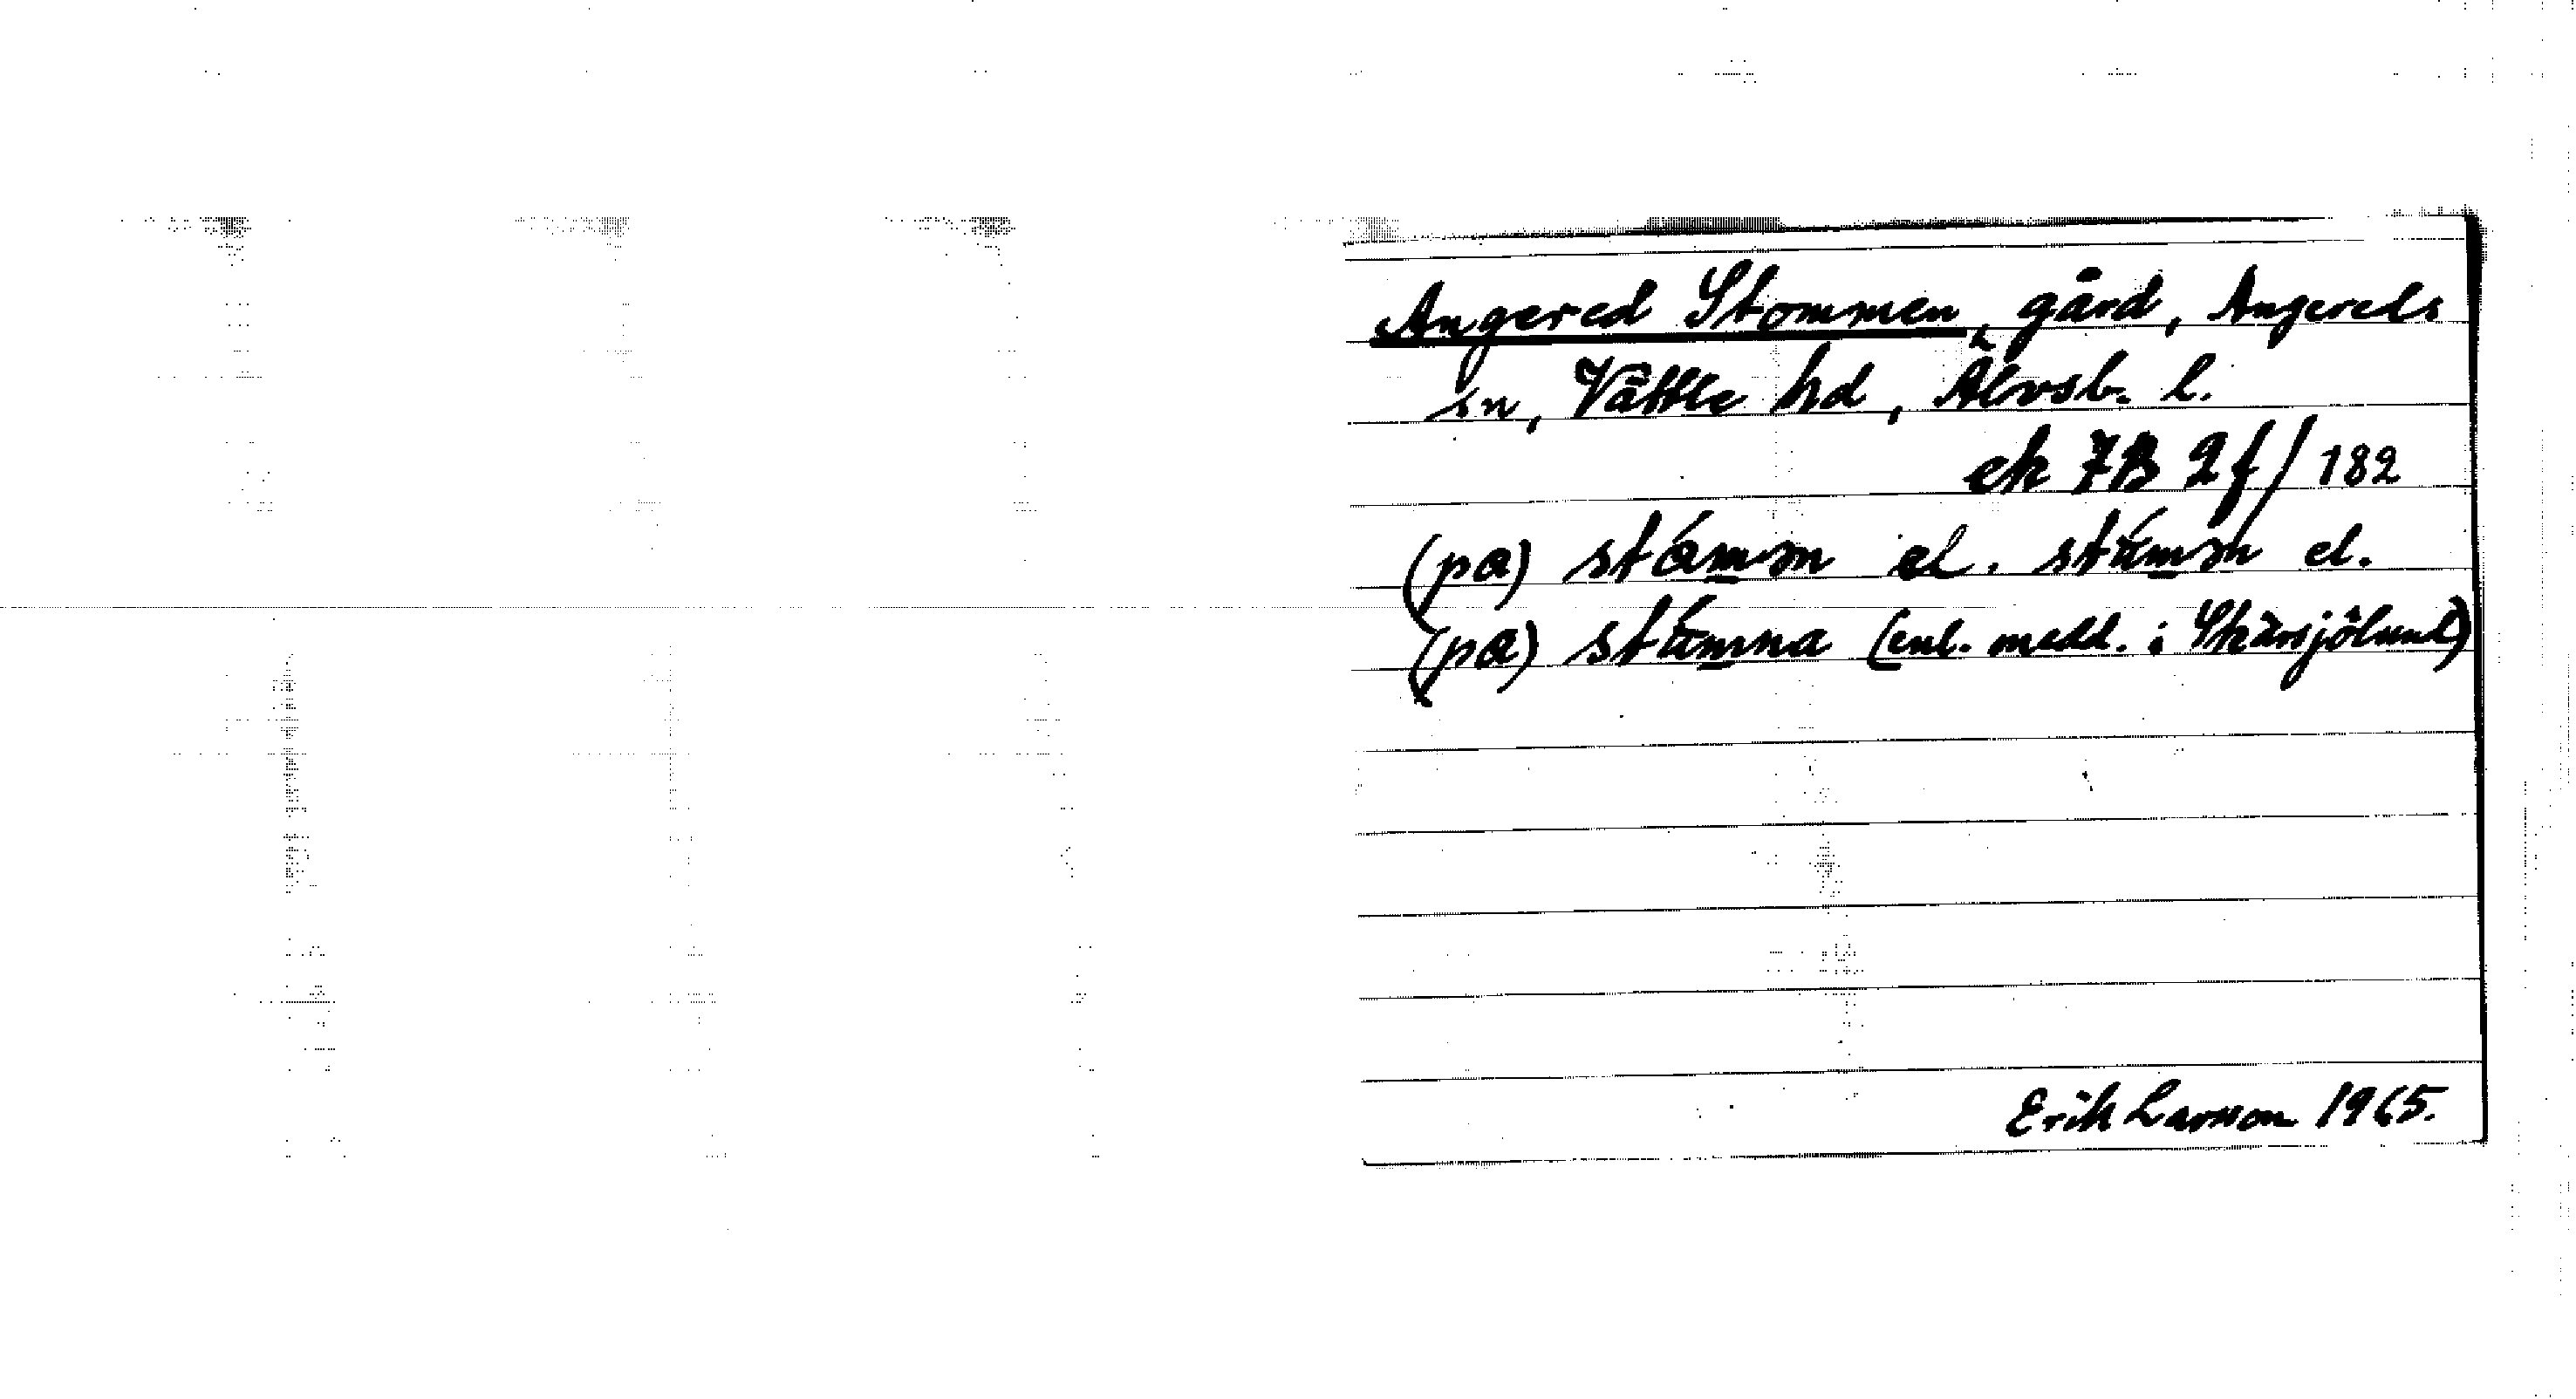 Angered Stommen, gård, Angereds
sn, Vättle hd, Älvsb. l.
ek 7B 2f/182
(pa) stómən el. stúmən el.
(pa) stúmna (enl. medd. i Skärsjölund)
Erik Larsson 1965.